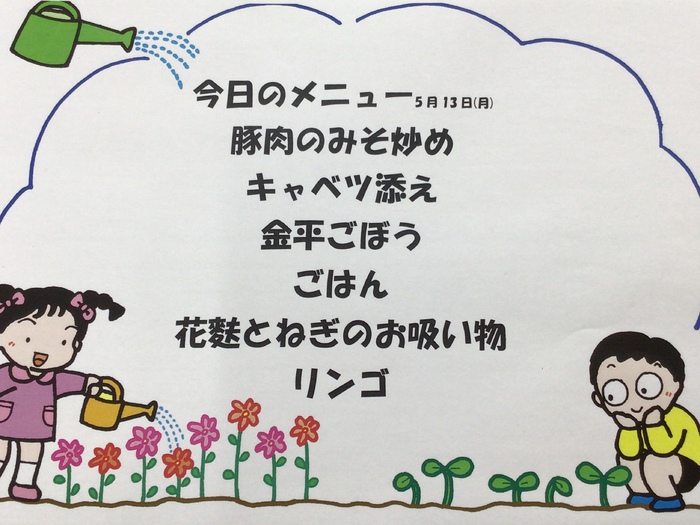 今日のメニュー5月13日(月)
豚肉のみそ炒め
キャベツ添え
金平ごぼう
ごはん
花麩とねぎのお吸い物
リンゴ